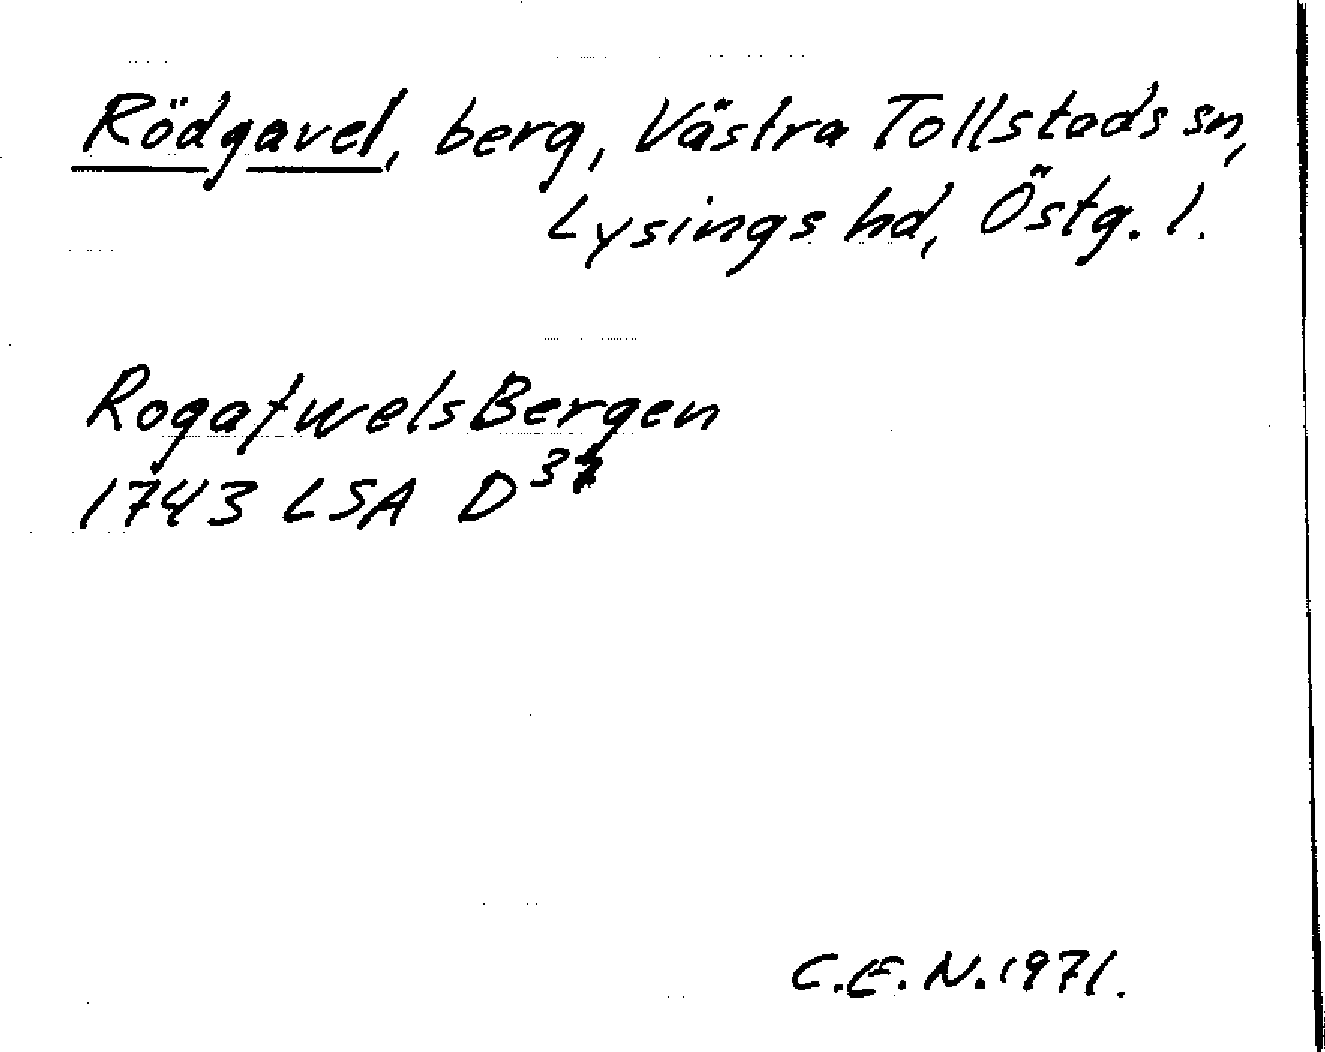 Rödgavel, berg, Västra Tollstads sn,
Lysings hd, Östg. l.
RogafwelsBergen
1743 LSA D 37
C.E.N. 1971.